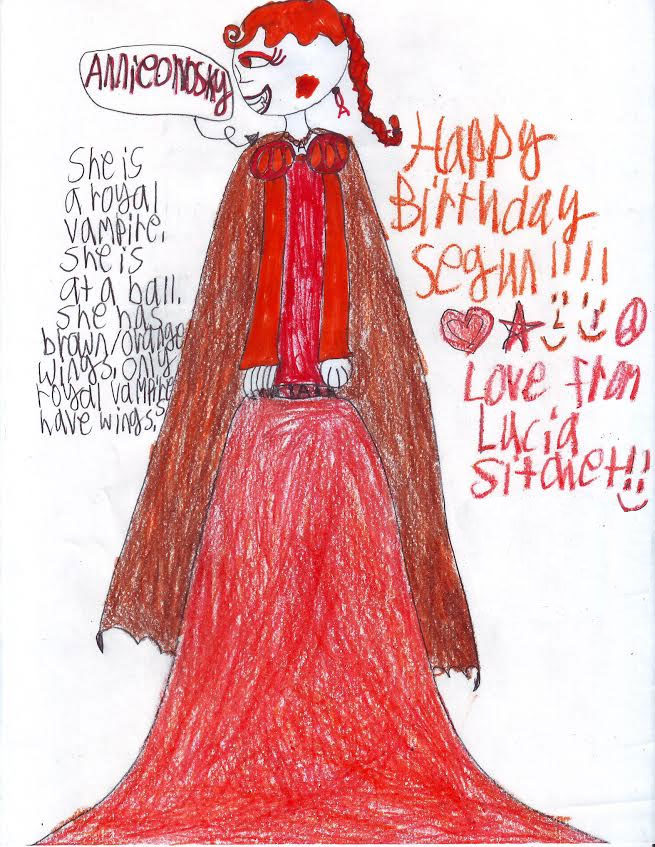 She is
a royal
vampire.
She is
at a ball.
She has
brown/orange
wings. only
royal vampires
have wings.
Happy
Birthday
Segun!!!!
Love from
Lucia